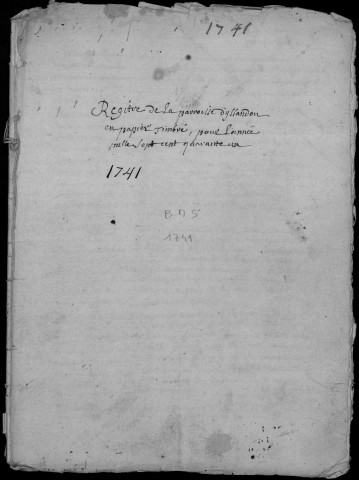 1741
Regître de la parroisse dyssandon
en papier timbré, pour l'année
mille sept cent quarante un
1741
BMS
1741